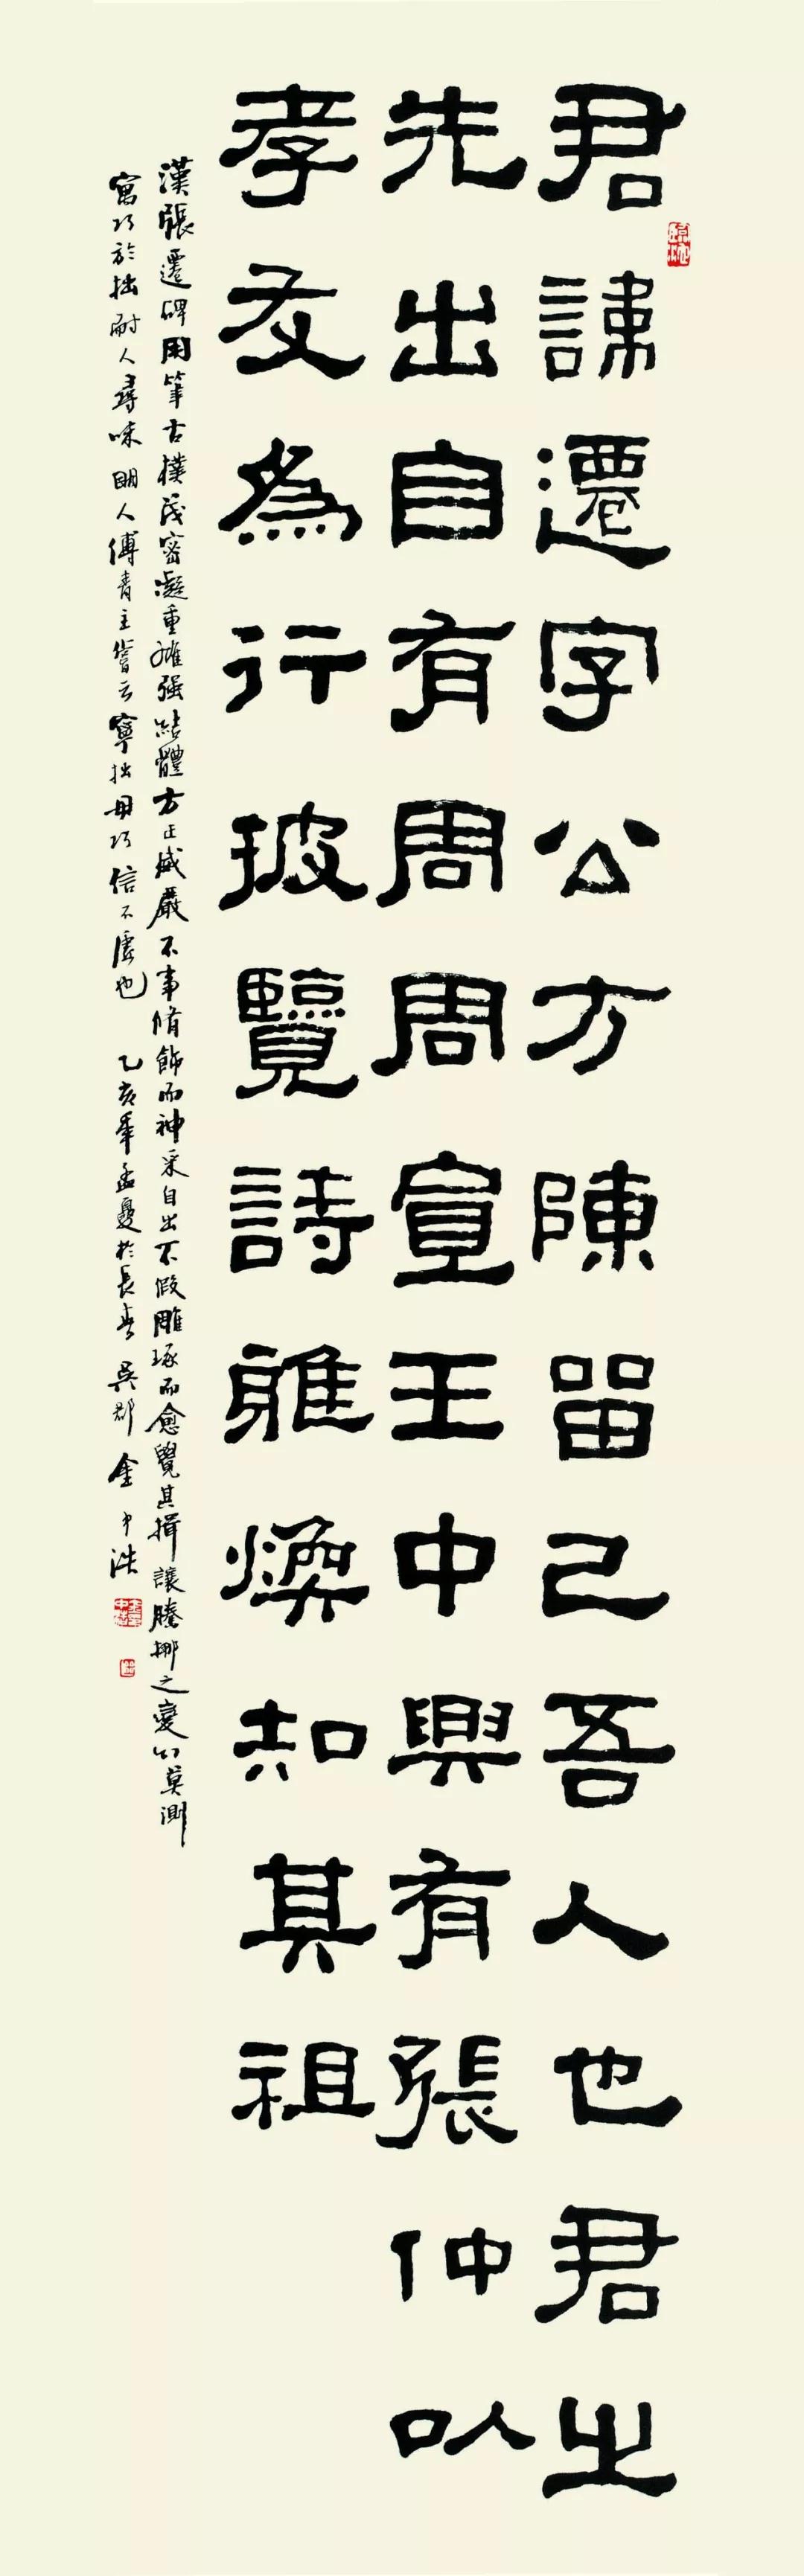 君諱遷字公方陳留己吾人也君之
先出自有周周宣王中興有張仲以
孝友為行披覽詩雅煥知其祖
漢張遷碑用筆古樸茂密凝重雄强結體方正威嚴不事脩飾而神采自出不假雕琢而愈覺其揖讓騰挪之變幻莫測
寓巧於拙耐人尋味明人傅青主嘗云寧拙毋巧信不虛也 乙亥年孟夏於長春 吳郡 金中浩